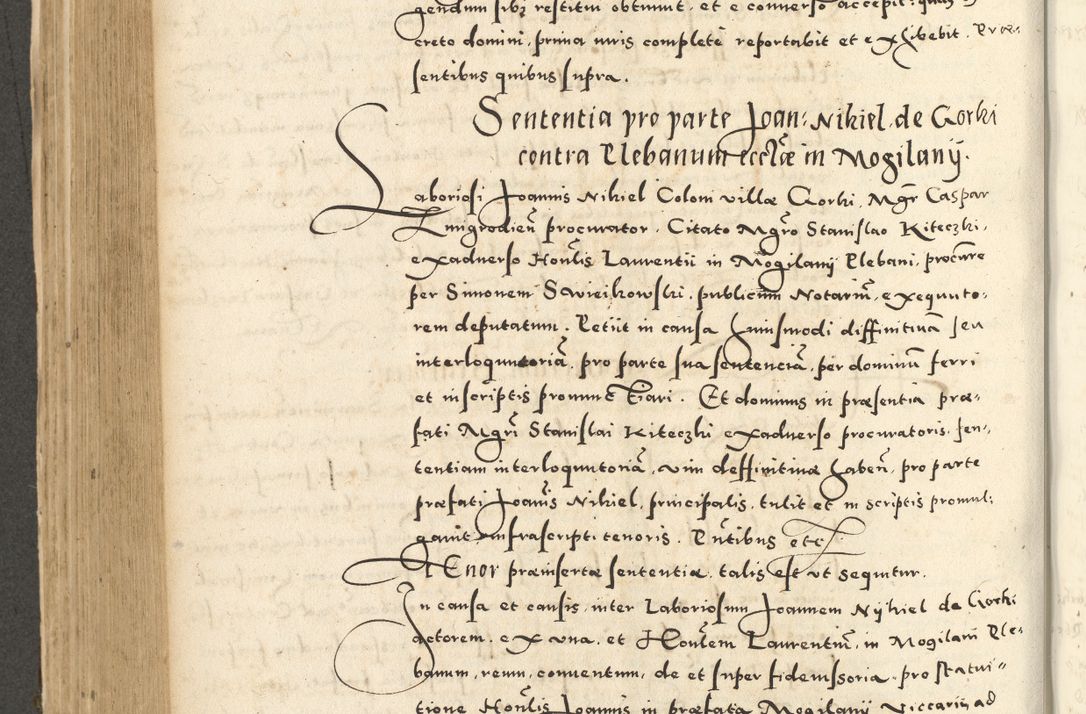 gendum sibi restitui obtinuit, et e converso accepit,
creto domini, prima iuris complete reportabit et exhibebit. Præ-
sentibus quibus supra.
Sententia pro parte Joan: Nikiel de Gorki
contra Plebanum eccl̃æ in Mogilany.
Laboriosi Joannis Nikiel Coloni villæ Gorki, Mgr̃ Caspar
Smigrodień procurator. Citato Mgr̃o Stanislao Kiteczki,
exadverso Honl̃is Laurentii in Mogilany Plebani, procũre
per Simonem Swieikowski, publicum Notariũ, exequuto-
rem deputatum. Petiit in causa huiusmodi diffinitivã seu
interloquutoriã, pro parte sua sententiã, per dominũ ferri
et in scriptis pronunctiari. Et dominus in præsentia præ-
fati Mgr̃i Stanislai Kiteczki exadverso procuratoris, sen-
tentiam interloquutoriã, vim deffinitivæ habeñ, pro parte
præfati Joanis Nikiel, principalis, tulit et in scriptis promul-
gavit infrascripti tenoris. Pñtibus etc
TEnor præinsertæ sententiæ, talis est ut sequitur.
In causa et causis, inter Laboriosum Joannem Nykiel de Gorki
actorem, ex una, et Honl̃em Laurentiũ, in Mogilani Ple-
banum, reum, conventum, de et super fideiussoria, pro statui-
tione Honl̃is Joannis in præfata Mogilany Viccarii, ad